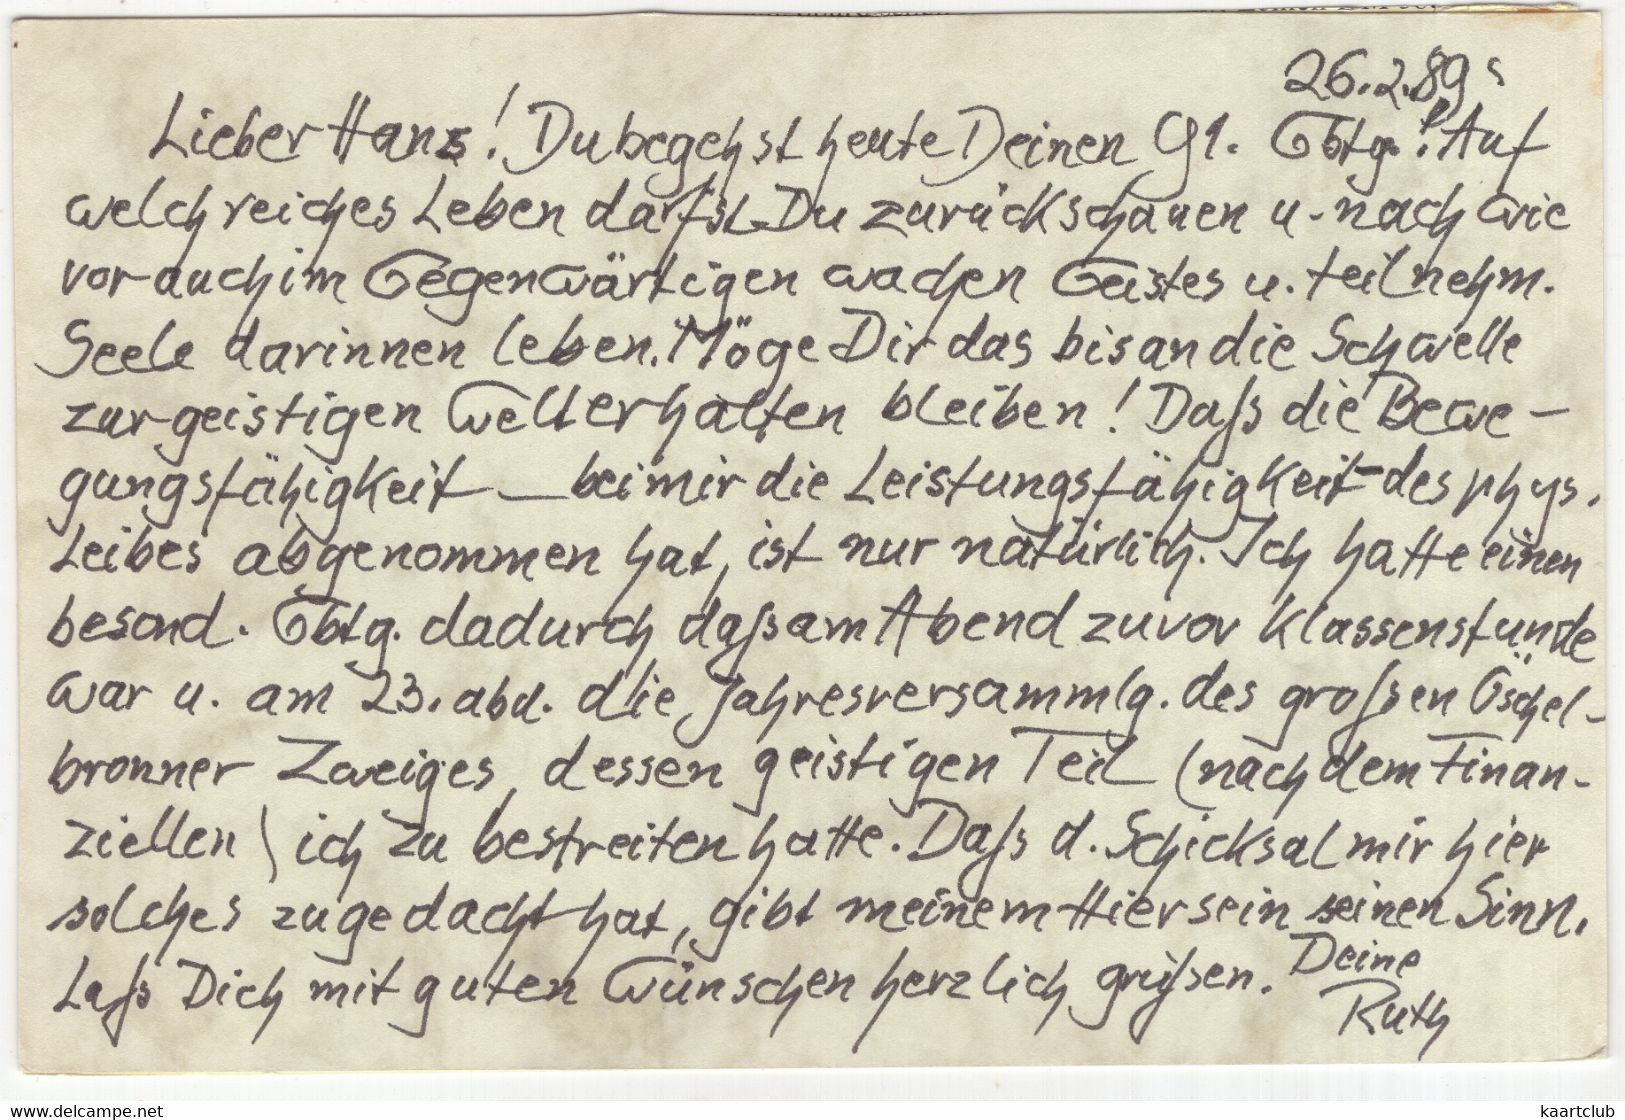 26.2.89
Lieber Hans! Du begehst heute Deinen 91. Gbtg.! Auf
welch reiches Leben darfst Du zurückschauen u. nach wie
vor auch im Gegenwärtigen wachen Geistes u. teilnehm.
Seele darinnen leben. Möge Dir das bis an die Schwelle
zur geistigen Welt erhalten bleiben! Daß die Bewe-
gungsfähigkeit – bei mir die Leistungsfähigkeit – des phys.
Leibes abgenommen hat, ist nur natürlich. Ich hatte einen
besond. Gbtg. dadurch daß am Abend zuvor Klassenstunde
war u. am 23. abd. die Jahresversammlg. des großen Öschel-
bronner Zweiges, dessen geistigen Teil (nach dem Finan-
ziellen) ich zu bestreiten hatte. Daß d. Schicksal mir hier
solches zugedacht hat, gibt meinem Hiersein seinen Sinn.
Laß Dich mit guten Wünschen herzlich grüßen. Deine
Ruth
www.delcampe.net
kaartclub